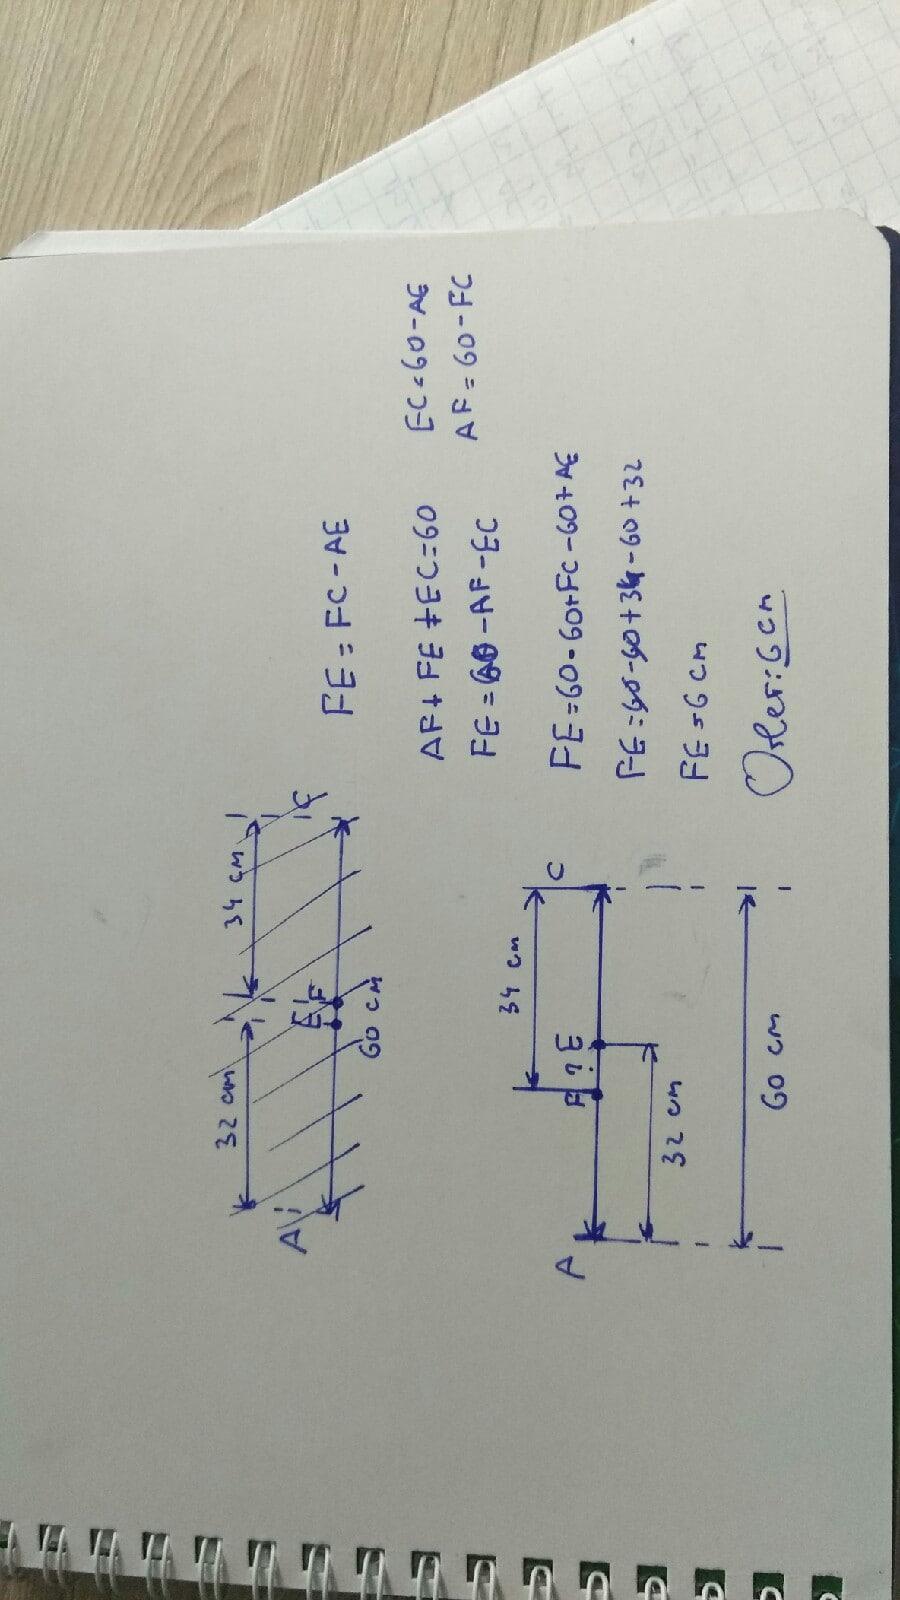 32 см
34 см
A
E
F
C
60 см
FE = FC - AE
AF + FE + EC = 60
EC = 60 - AE
FE = 60 - AF - EC
AF = 60 - FC
34 см
A
F
?
E
C
32 см
60 см
FE = 60 - 60 + FC - 60 + AE
FE = 60 - 60 + 34 - 60 + 32
FE = 6 см
Ответ: 6 см